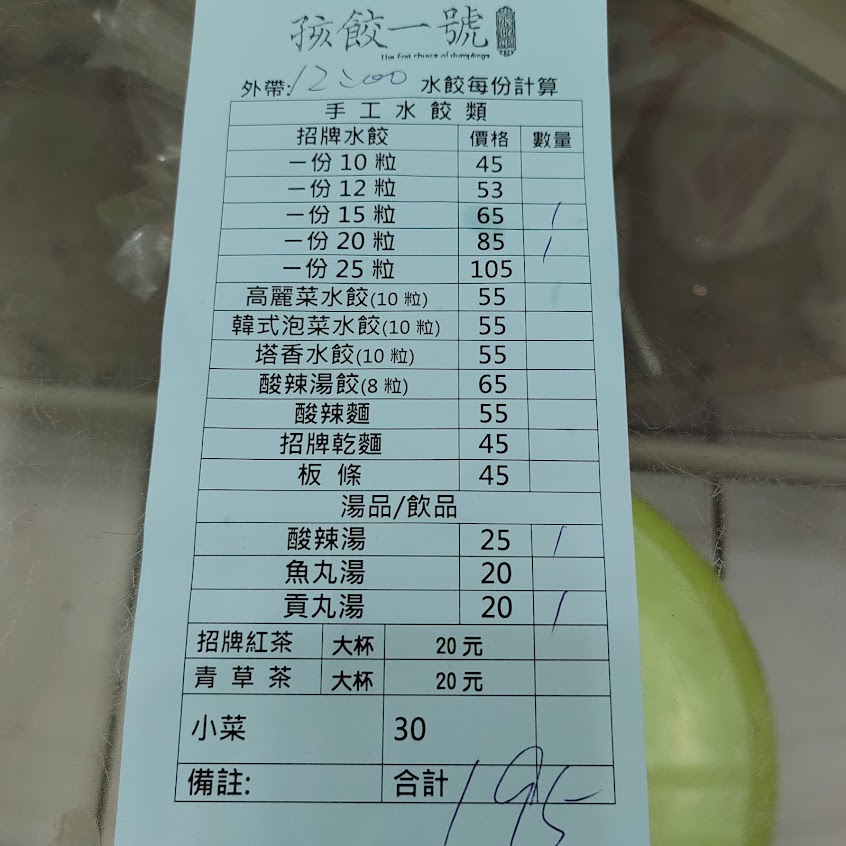 孩餃一號
The first choice of dumplings
外帶:12:00 水餃每份計算
手工水餃類
招牌水餃 價格 數量
一份10粒 45
一份12粒 53
一份15粒 65 1
一份20粒 85 1
一份25粒 105
高麗菜水餃(10粒) 55
韓式泡菜水餃(10粒) 55
塔香水餃(10粒) 55
酸辣湯餃(8粒) 65
酸辣麵 55
招牌乾麵 45
板條 45
湯品/飲品
酸辣湯 25 1
魚丸湯 20
貢丸湯 20 1
招牌紅茶 大杯 20元
青草茶 大杯 20元
小菜 30
備註: 合計 195